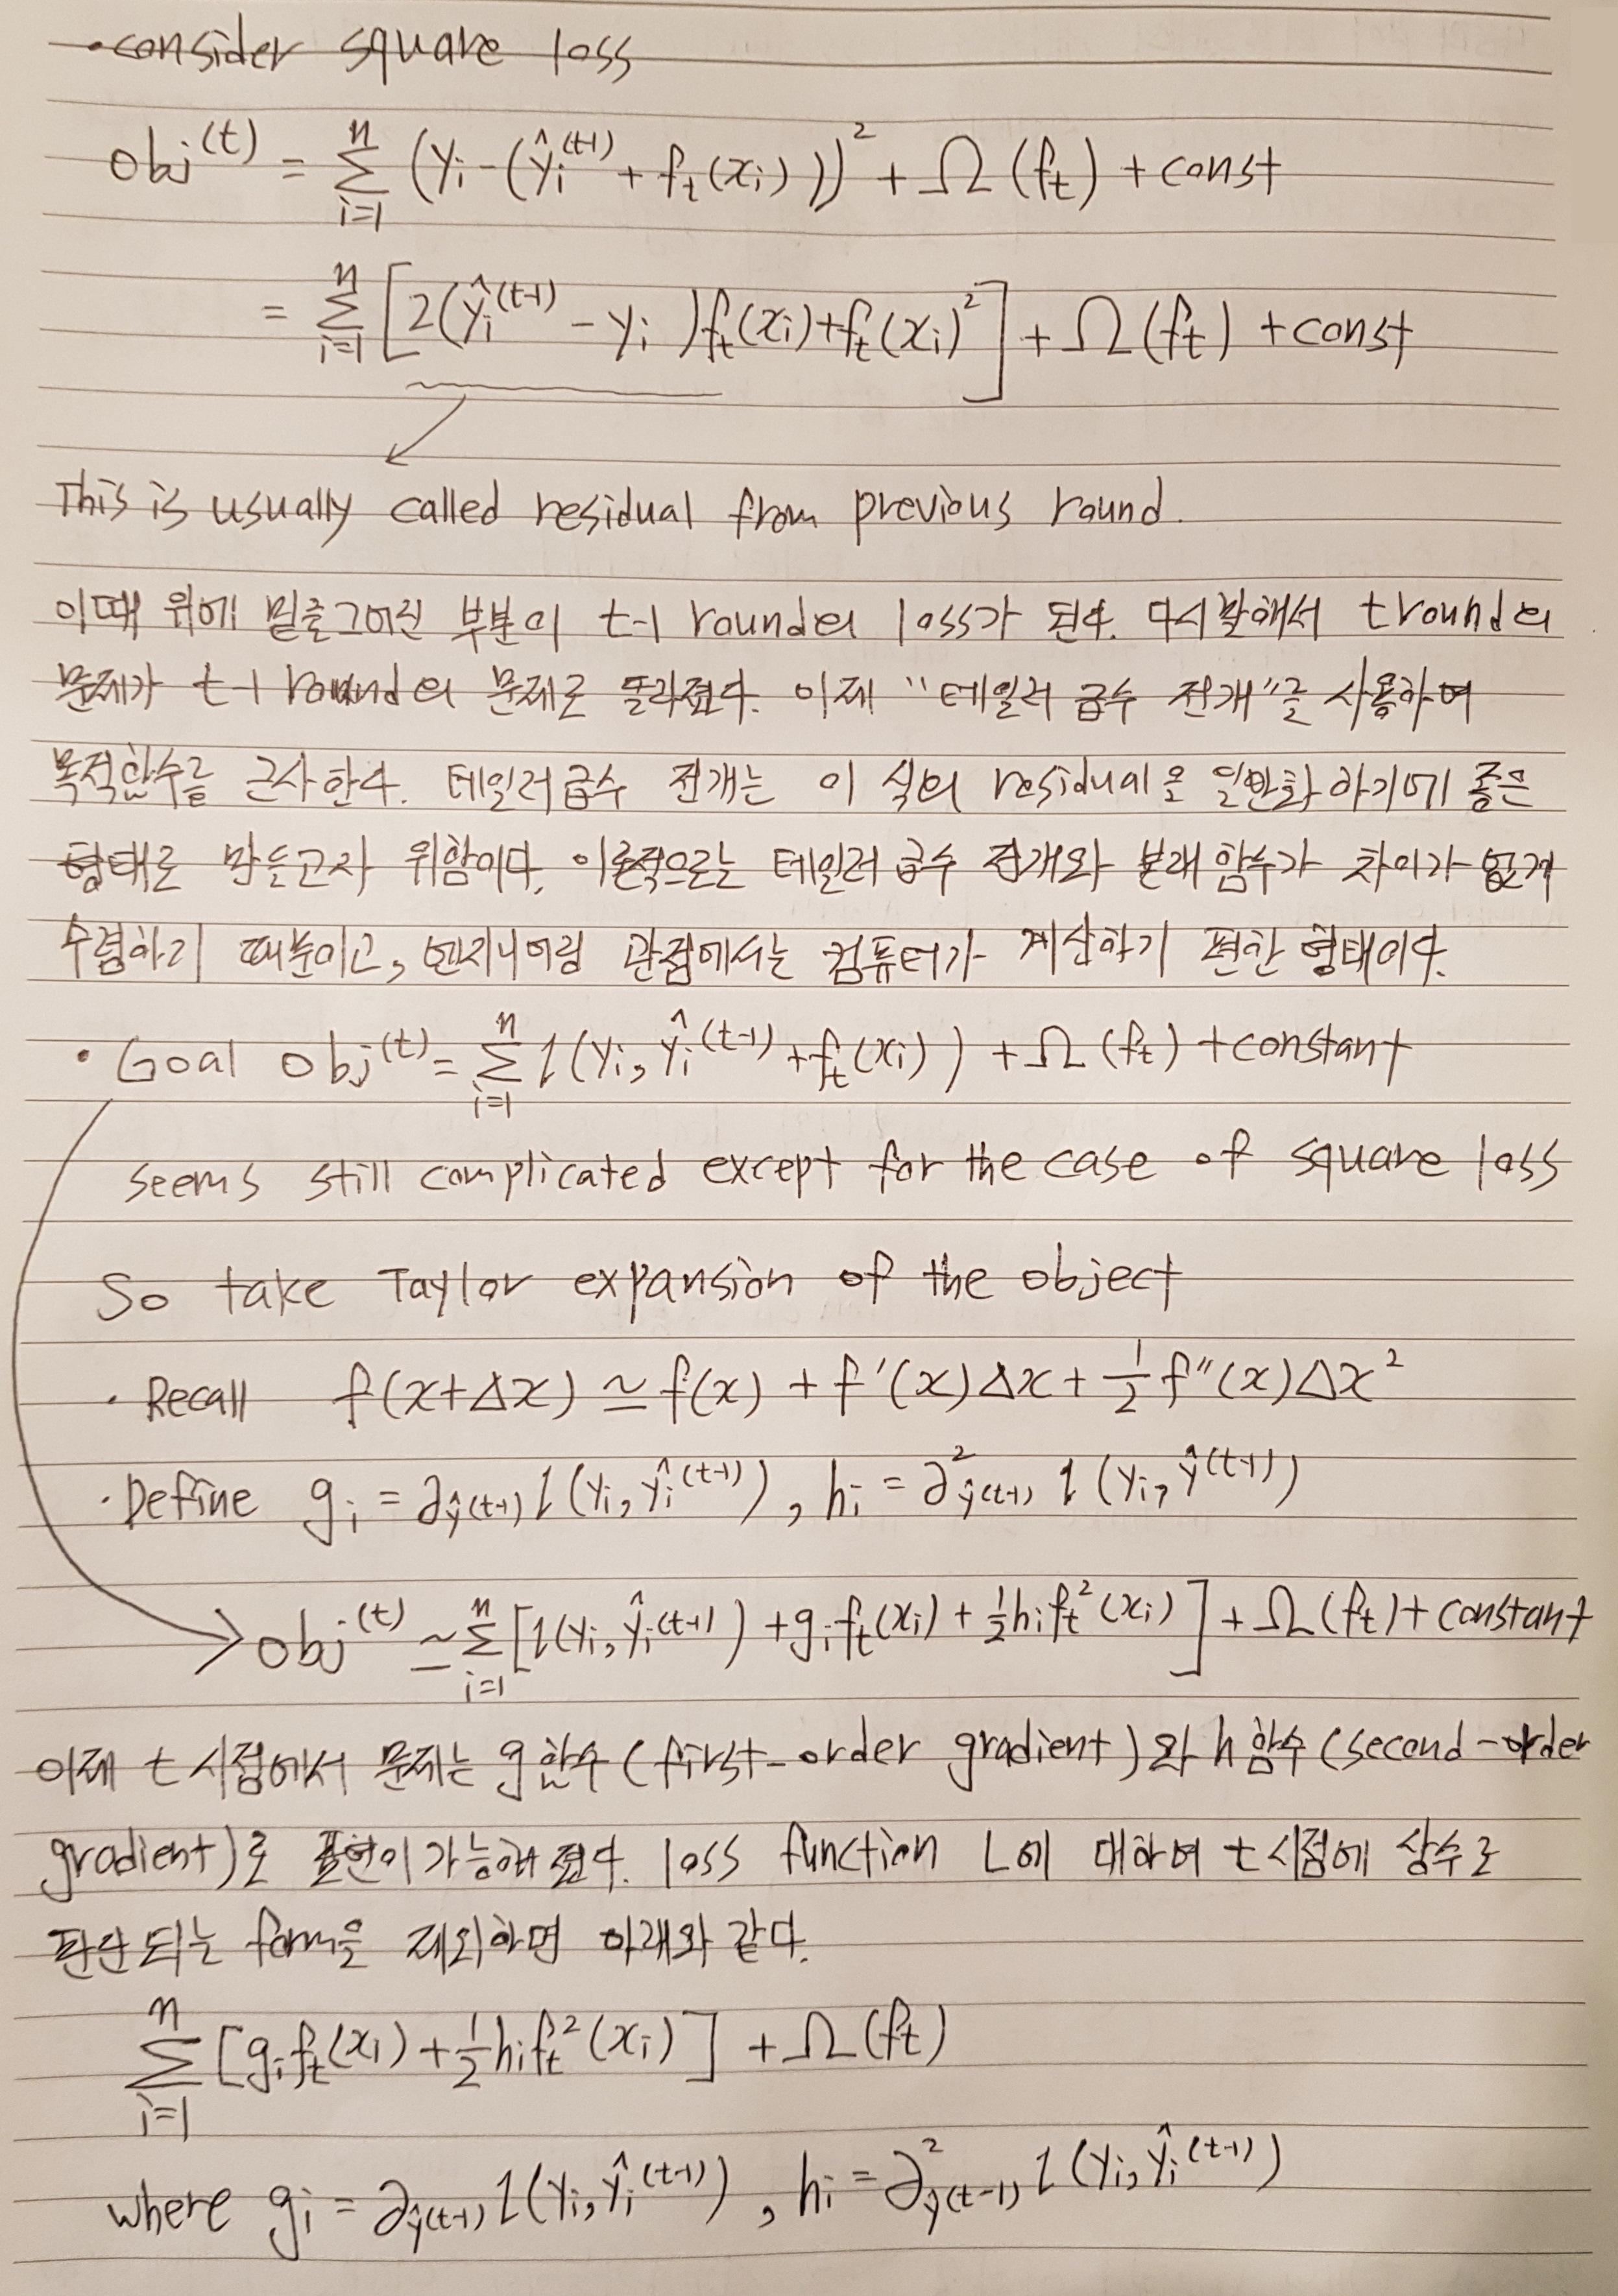 ·consider square loss
obj^(t) = Σ_{i=1}^{n} (y_i - (ŷ_i^(t-1) + f_t(x_i)))² + Ω(f_t) + const
= Σ_{i=1}^{n} [2(ŷ_i^(t-1) - y_i)f_t(x_i) + f_t(x_i)²] + Ω(f_t) + const
This is usually called residual from previous round.
이때 위에 밑줄그어진 부분이 t-1 round의 loss가 된다. 다시말해서 t round의
문제가 t-1 round의 문제로 달라졌다. 이제 "테일러 급수 전개"를 사용하여
목적함수를 근사한다. 테일러급수 전개는 이 식의 residual을 일반화 하기에 좋은
형태로 만들고자 위함이다. 이론적으로는 테일러 급수 전개와 본래 함수가 차이가 없게
수렴하기 때문이고, 엔지니어링 관점에서는 컴퓨터가 계산하기 편한 형태이다.
· Goal obj^(t) = Σ_{i=1}^{n} l(y_i, ŷ_i^(t-1) + f_t(x_i)) + Ω(f_t) + constant
seems still complicated except for the case of square loss
So take Taylor expansion of the object
· Recall f(x+Δx) ≃ f(x) + f'(x)Δx + ½f''(x)Δx²
· Define g_i = ∂_{ŷ^(t-1)} l(y_i, ŷ_i^(t-1)), h_i = ∂²_{ŷ^(t-1)} l(y_i, ŷ^(t-1))
obj^(t) ≃ Σ_{i=1}^{n} [l(y_i, ŷ_i^(t-1)) + g_i f_t(x_i) + ½h_i f_t²(x_i)] + Ω(f_t) + constant
이제 t시점에서 문제는 g함수 (first-order gradient)와 h함수 (second-order
gradient)로 표현이 가능해졌다. loss function L에 대하여 t시점에 상수로
판단되는 form을 제외하면 아래와 같다.
Σ_{i=1}^{n} [g_i f_t(x_i) + ½h_i f_t²(x_i)] + Ω(f_t)
where g_i = ∂_{ŷ^(t-1)} l(y_i, ŷ_i^(t-1)), h_i = ∂²_{ŷ^(t-1)} l(y_i, ŷ_i^(t-1))